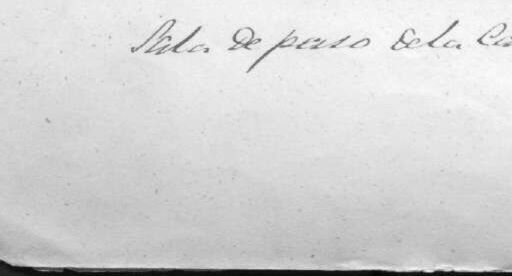 Sala de paso de la Ca